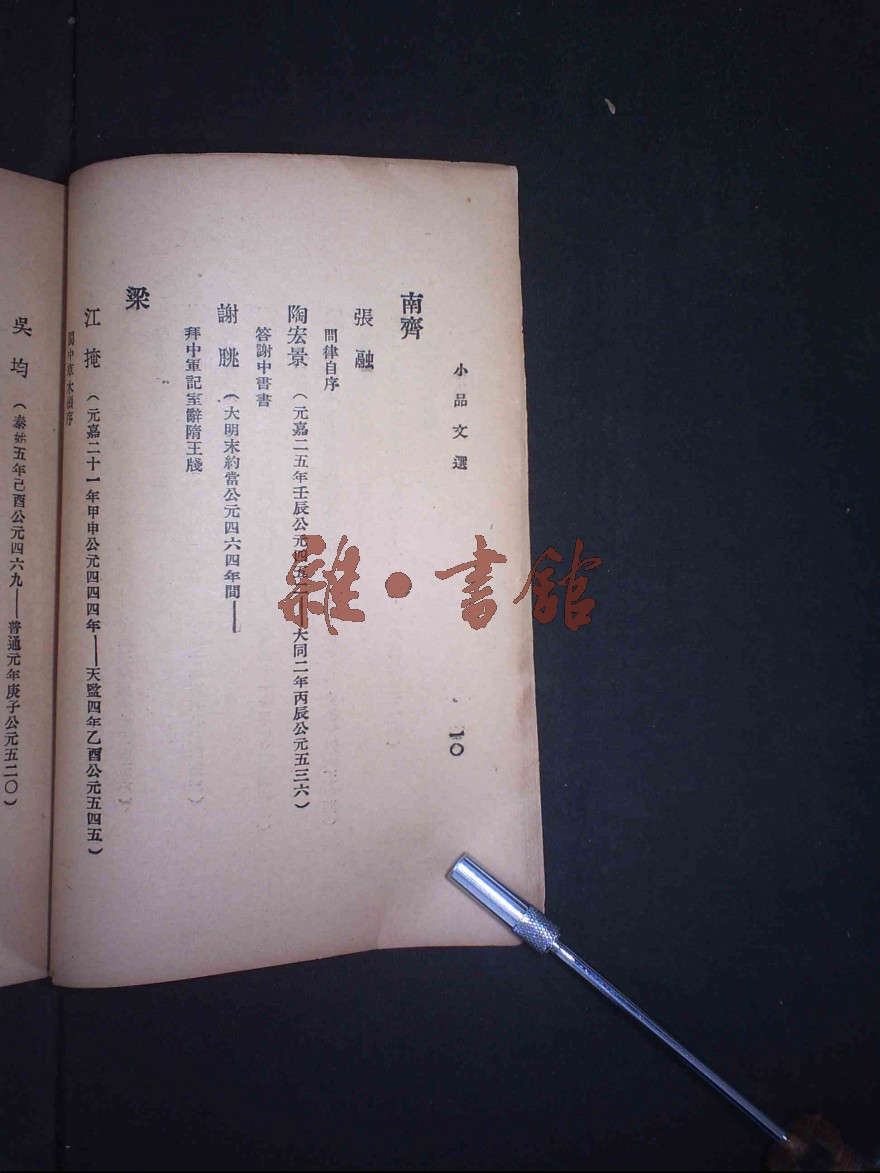 小品文選
一〇
南齊
張融
問律自序
陶宏景（元嘉二五年壬辰公元四五　——大同二年丙辰公元五三六）
答謝中書書
謝朓（大明末約當公元四六四年間——
拜中軍記室辭隋王牋
梁
江掩（元嘉二十一年甲申公元四四四年——天監四年乙酉公元五四五）
閩中草木頌序
吳均（泰始五年己酉公元四六九——普通元年庚子公元五二〇）
雜·書館